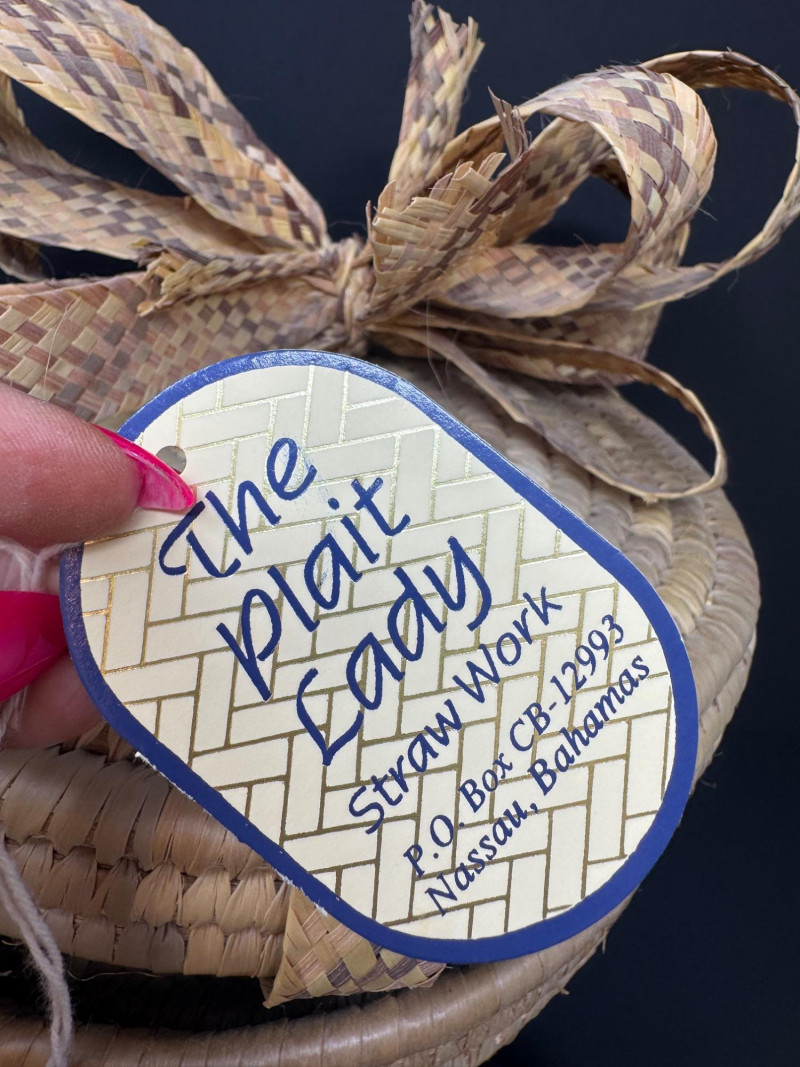 The
Plait
Lady
Straw Work
P.O. Box CB-12993
Nassau, Bahamas